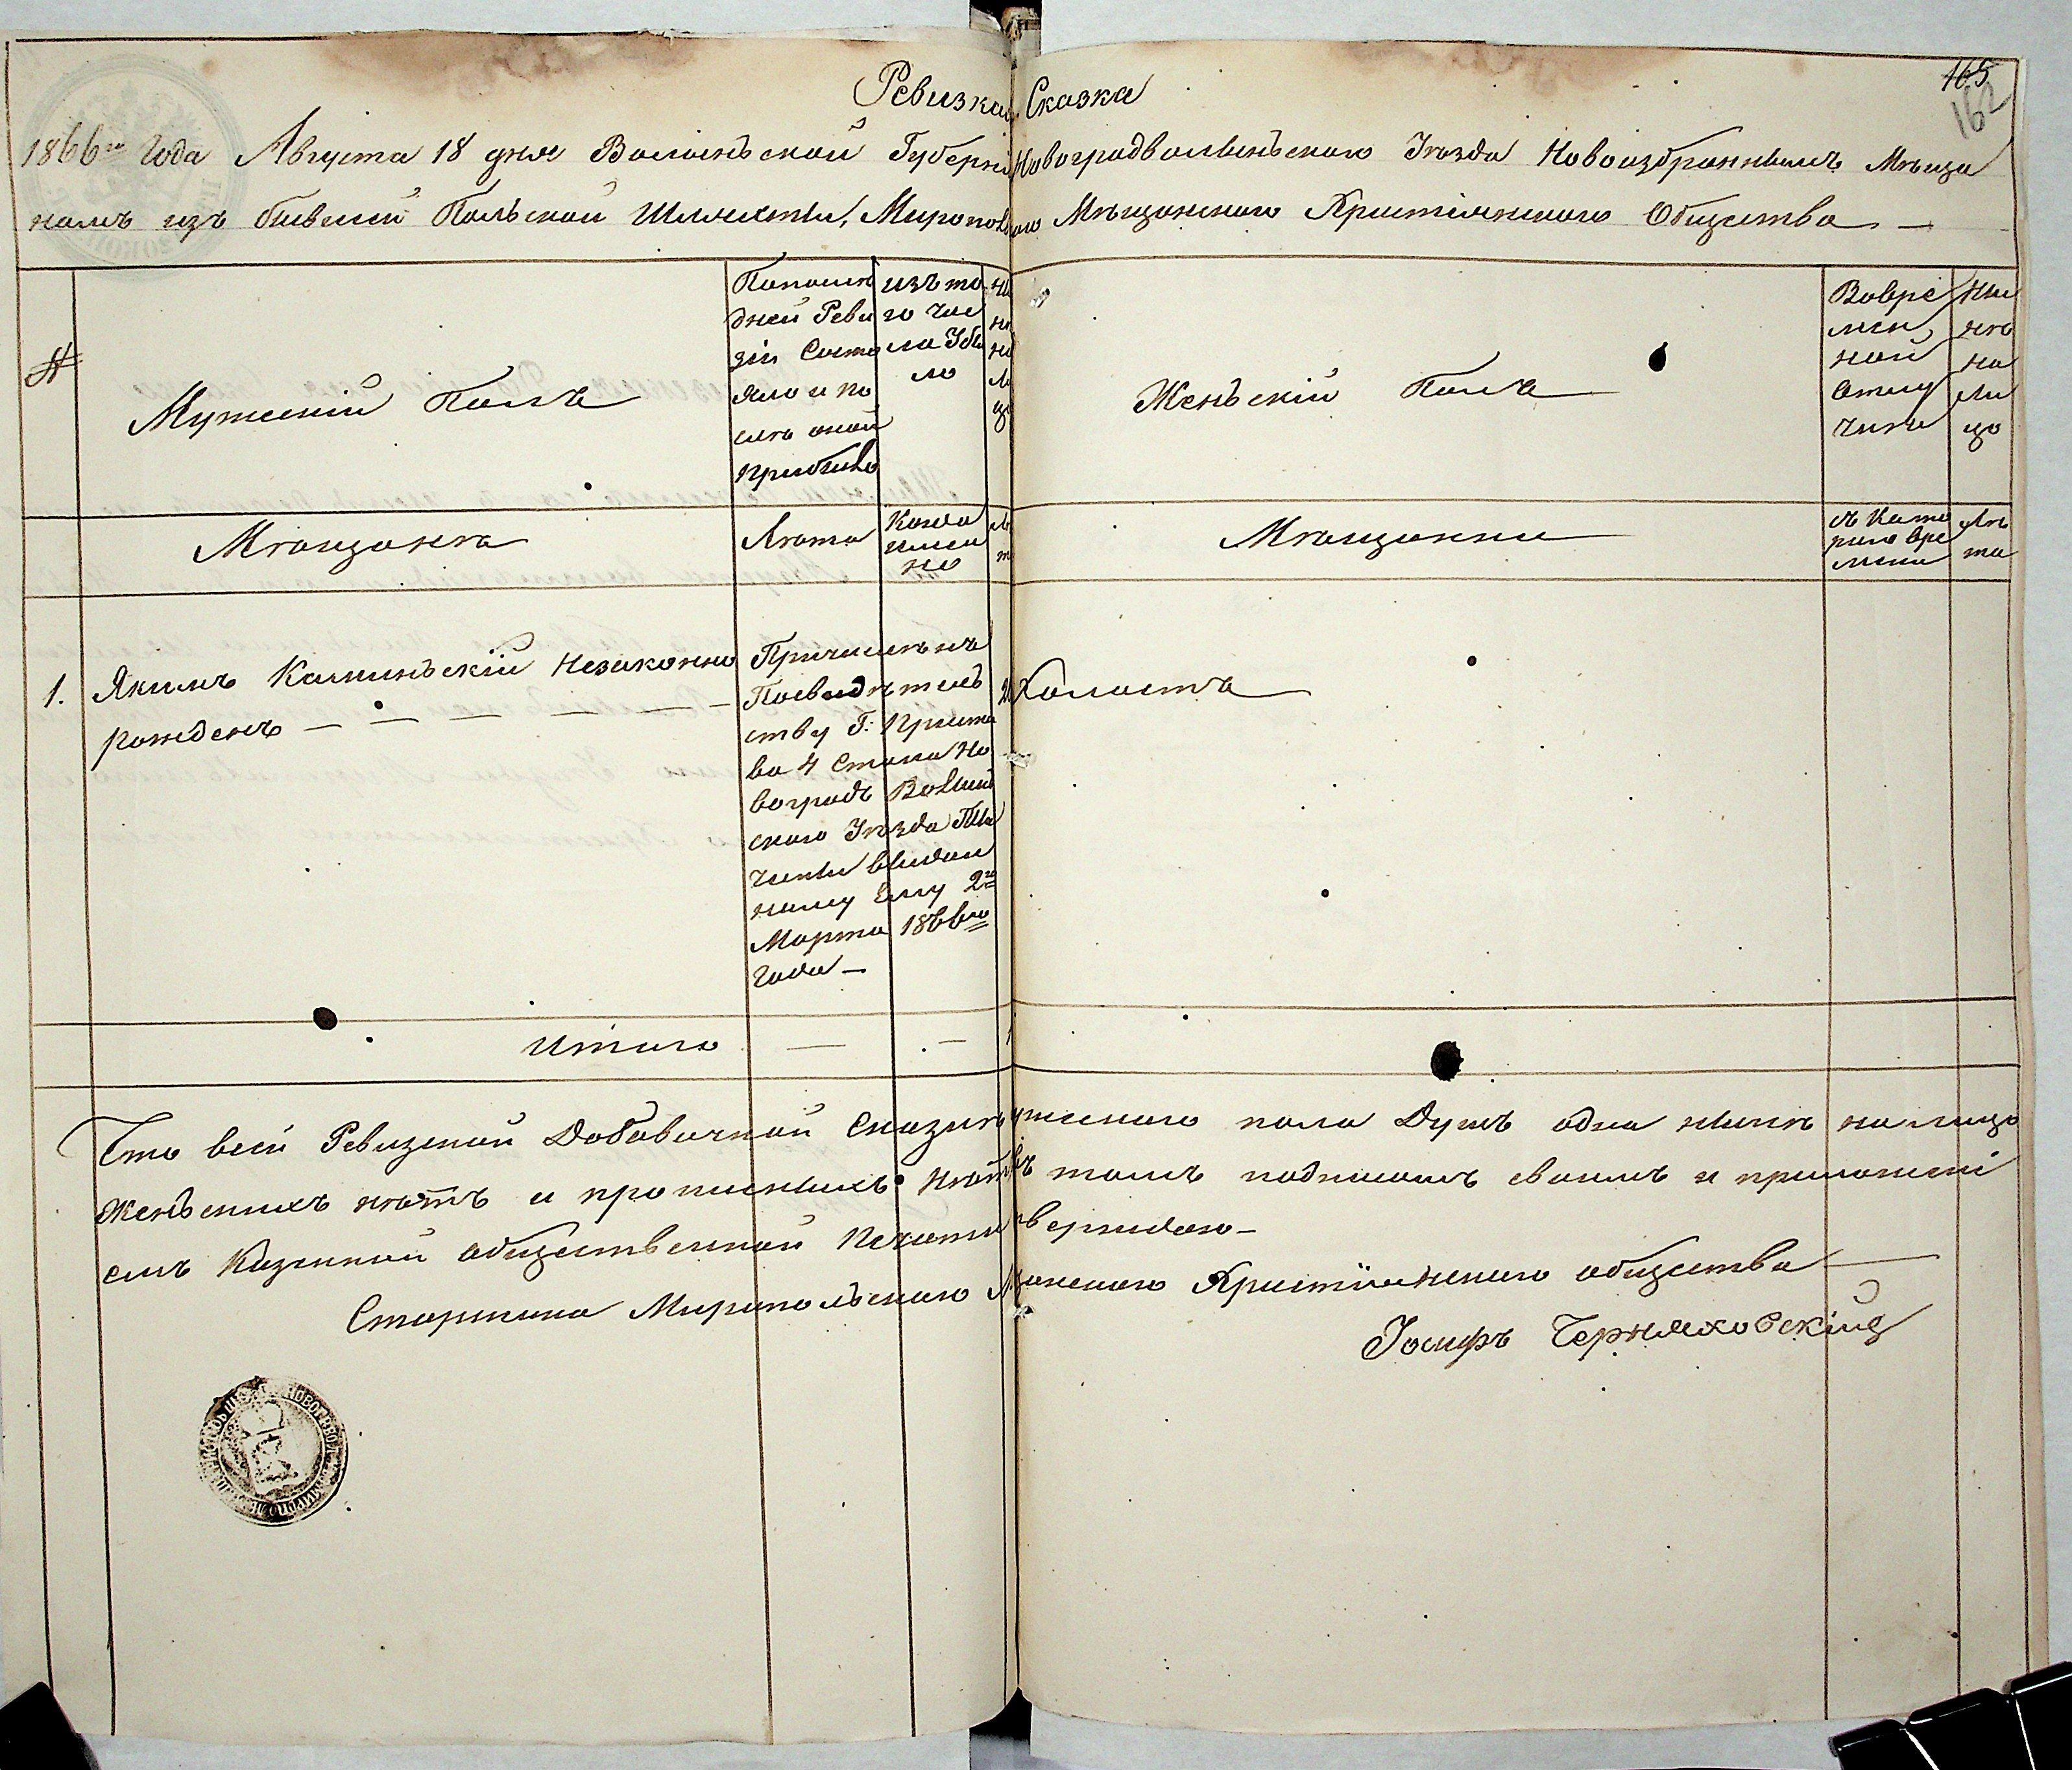 165
162
Ревизкая Сказка
1866го Года Августа 18 дня Волинъской Губерніи Новоградволинъского Уѣзда Новоизбраннымъ Мѣща
намъ изъ бывшей Польской Шляхты, Миропольского Мѣщанского Христіянского Общества —
№
Мужескій Полъ
Попослѣ
дней Реви
зіи Состо
яло и по
слѣ оной
прибыло
изъ то
го чис
ла Убы
ло
Женьскій Полъ
Вовре
мен,
ной
Отлу
чкѣ
Ны
нѣ
на
ли
цо
Мѣщанѣ
Лѣта
Когда
имен
но
Мѣщанки
съ Кото
раго вре
мени
Лѣ
та
1. Якимъ Каминьскій Незаконно
рожденъ — — — — — —
Причисленъ
Посвидѣтель
ству Г: Приста
ва 4 Стана Но
воградъ Волынъ
ского Уѣзда
выдан
ному Ему 2го
Марта 1866го
года —
Холостъ
Итого — —
Что всей Ревизкой Добавочной Сказкѣ мужеского пола Душъ одна нынѣ на лицо
Женьскихъ нѣтъ и прописныхъ нѣтъ въ томъ подписомъ своимъ и приложені
емъ Казенной общественной Печати утверждаю —
Старшина Миропольского Мѣщанского Христіянского общества —
Іосифъ Черняховскій